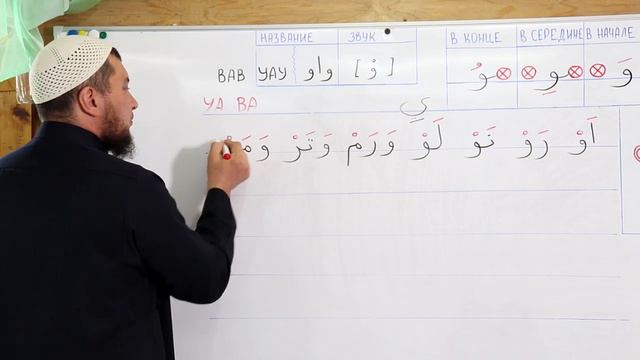 НАЗВАНИЕ ЗВУК В КОНЦЕ В СЕРЕДИНЕ В НАЧАЛЕ
ВАВ УАУ واو [وْ] وُ وِ وَ
УА ВА
يِ
اَوْ رَوْ نَوْ لَوْ وَرَمْ وَتَرْ وَ